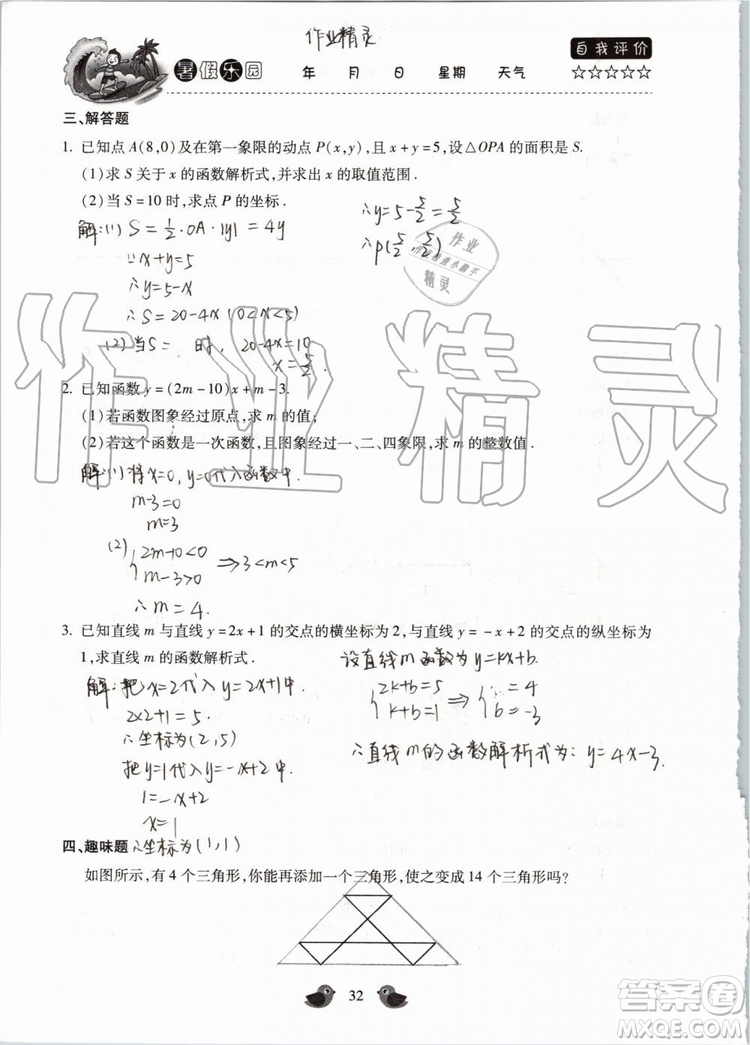 作业精灵
暑假乐园
年 月 日 星期 天气
自我评价
☆☆☆☆☆
三、解答题
1. 已知点A(8,0)及在第一象限的动点P(x,y),且x+y=5,设△OPA的面积是S.
(1)求S关于x的函数解析式,并求出x的取值范围.
(2)当S=10时,求点P的坐标.
解:(1) S=1/2·OA·|y|=4y
∵x+y=5
∴y=5-x
∴S=20-4x(0<x<5)
(2)当S= 时, 20-4x=10
x=5/2
∴y=5-5/2=5/2
∴P(5/2,5/2)
作业
精灵
2. 已知函数y=(2m-10)x+m-3.
(1)若函数图象经过原点,求m的值;
(2)若这个函数是一次函数,且图象经过一、二、四象限,求m的整数值.
解:(1)将x=0,y=0代入函数中.
m-3=0
m=3
(2) {2m-10<0
m-3>0 ⇒3<m<5
∴m=4.
3. 已知直线m与直线y=2x+1的交点的横坐标为2,与直线y=-x+2的交点的纵坐标为
1,求直线m的函数解析式.
解:把x=2代入y=2x+1中.
2×2+1=5.
∴坐标为(2,5)
把y=1代入y=-x+2中.
1=-x+2
x=1
∴坐标为(1,1)
设直线m函数为y=kx+b.
{2k+b=5 ⇒ { =4
k+b=1 b=-3
∴直线m的函数解析式为:y=4x-3.
四、趣味题
如图所示,有4个三角形,你能再添加一个三角形,使之变成14个三角形吗?
32
作业精灵
答案圈
MXQE.COM